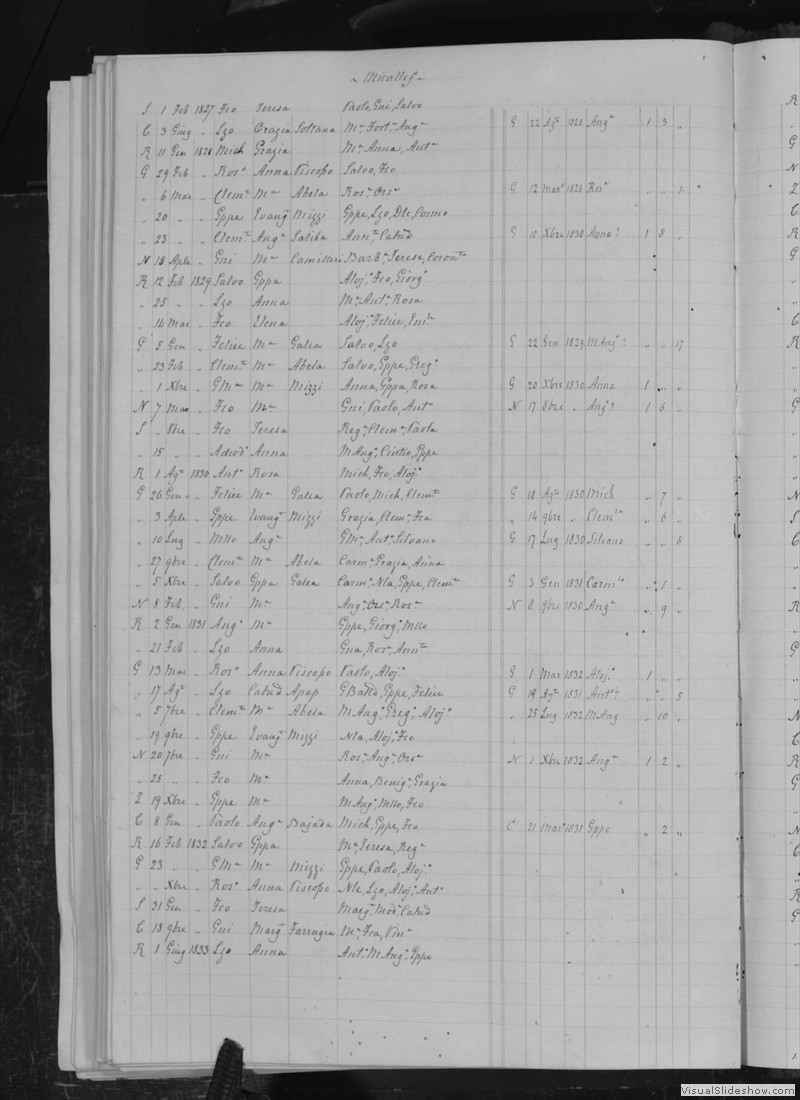 ~ Micallef ~
S 1 Feb 1827 Fco Teresa Paolo, Gni, Salvo
C 3 Giug " Lzo Grazia Sultana Ma, Forta, Anga G 22 Agto 1828 Anga 1 3 "
R 11 Gen 1828 Mich Grazia Ma, Anna, Anta
G 29 Feb " Roso Anna Piscopo Salvo, Fco
" 6 Mar " Clemte Ma Abela Rosa, Orsa G 12 Maro 1828 Rosa " " 1
" 20 " " Gppe Evanga Mizzi Gppe, Lzo, Dlo, Cosmo
" 23 " " Clemte Anga Saliba Annta, Catnd G 10 Xbre 1830 Anna? 1 8 "
N 18 Aple " Gni Ma Camilleri Barba, Teresa, Coronta
R 12 Feb 1829 Salvo Gppa Alojo, Fco, Giorgo
" 25 " " Lzo Anna Ma, Anta, Rosa
" 14 Mar " Fco Elena Alojo, Felice, Emla
G 5 Gen " Felice Ma Galea Salvo, Lzo G 22 Gen 1829 M Anga? " " 17
" 23 Feb " Clemte Ma Abela Salvo, Gppe, Grego
" 1 Xbre " GMa Ma Mizzi Anna, Gppa, Rosa G 20 Xbre 1830 Anna 1 " "
N 7 Mar " Fco Ma Gni, Paolo, Anta N 17 8bre " Anga? 1 6 "
S " 8bre " Fco Teresa Rega, Clema, Paola
" 15 " " Adeodo Anna M Anga, Cintia, Gppe
R 1 Agto 1830 Anto Rosa Mich, Fco, Alojo
G 26 Gen " Felice Ma Galea Paolo, Mich, Clemte G 18 Agto 1830 Mich " 7 "
" 3 Aple " Gppe Evanga Mizzi Grazia, Clema, Fca " 14 9bre " Clemta " 6 "
" 10 Lug " Mllo Anga GMa, Anto, Silvano G 17 Lug 1830 Silvano " " 8
" 27 9bre " Clemte Ma Abela Carma, Grazia, Anna
" 5 Xbre " Salvo Gppa Galea Carma, Nla, Gppe, Clemte G 3 Gen 1831 Carmla " 1 "
N 8 Feb " Gni Ma Anga, Orsa, Rosa N 8 9bre 1830 Anga " 9 "
R 2 Gen 1831 Ango Ma Gppe, Giorgo, Mllo
" 21 Feb " Lzo Anna Gna, Rosa, Annta
G 13 Mar " Roso Anna Piscopo Paolo, Alojo G 1 Mar 1832 Alojo 1 " "
" 17 Agto " Lzo Catnd Apap GBatta, Gppe, Felice G 19 Agto 1831 Anto? " " 5
" 5 7bre " Clemte Ma Abela M Anga, Grega, Aloja " 25 Lug 1832 M Ang " 10 "
" 19 9bre " Gppe Evanga Mizzi Nla, Aloja, Fco
N 20 7bre " Gni Ma Rosa, Anga, Orsa N 1 Xbre 1832 Anga 1 2 "
" 25 " " Fco Ma Anna, Beniga, Grazia
Z 19 Xbre " Gppe Ma M Anga, Mllo, Fco
C 8 Gen " Paolo Anga Bajada Mich, Gppe, Fco C 21 Maro 1831 Gppe " 2 "
R 16 Feb 1832 Salvo Gppa Ma, Teresa, Rega
G 23 " " GMa Ma Mizzi Gppe, Paolo, Alojo
" " Xbre " Roso Anna Piscopo Nle, Lzo, Alojo, Anto
S 31 Gen " Fco Teresa Marga, Moda, Catnd
C 18 9bre " Gni Marga Farrugia Ma, Fca, Vina
R 1 Giug 1833 Lzo Anna Anta, M Anga, Gppe
R
G
N
Z
C
R
G
VisualSlideshow.com